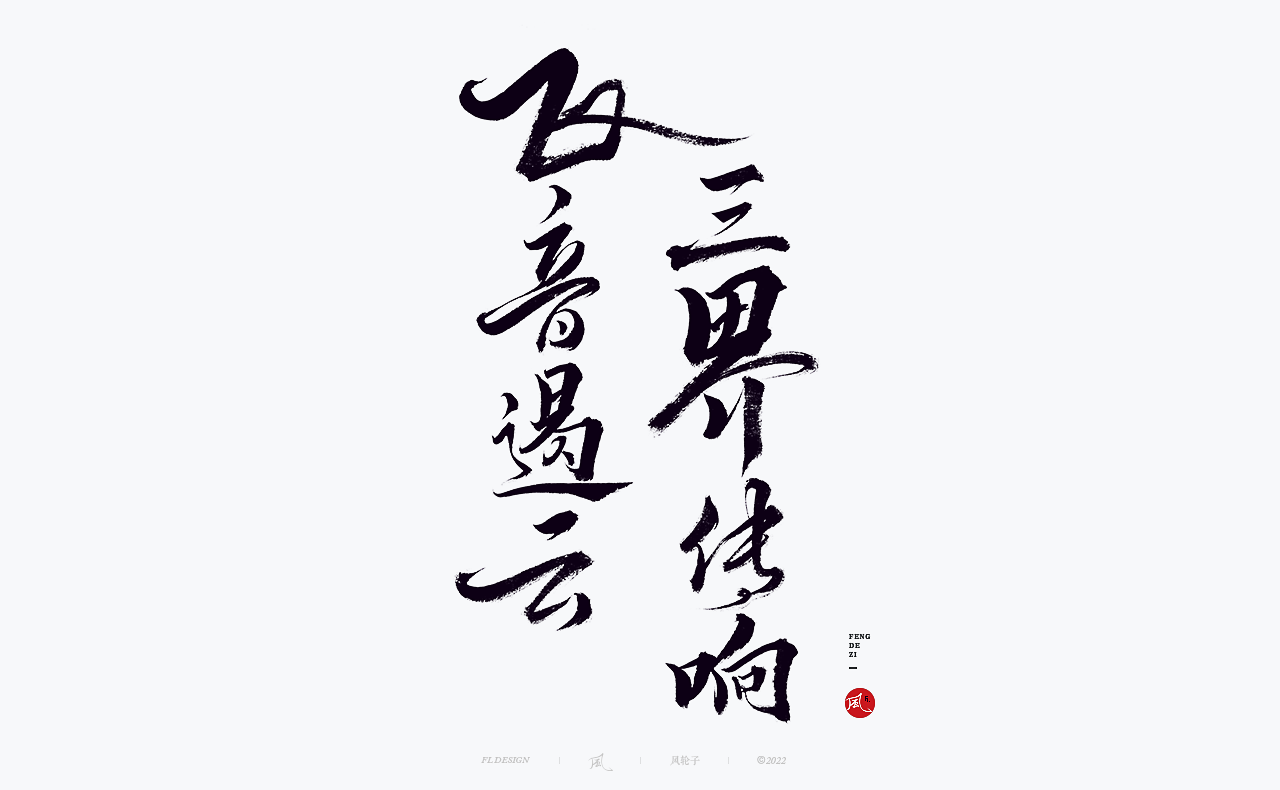 三界传响
飞音遏云
FENG
DE
ZI
風
FL.DESIGN
風
风轮子
©2022